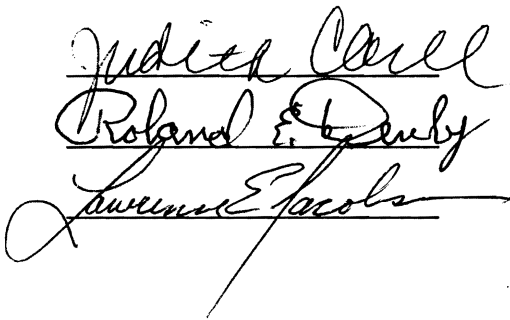 Judith
Roland E. Derby
Lawrence E. Jacobs